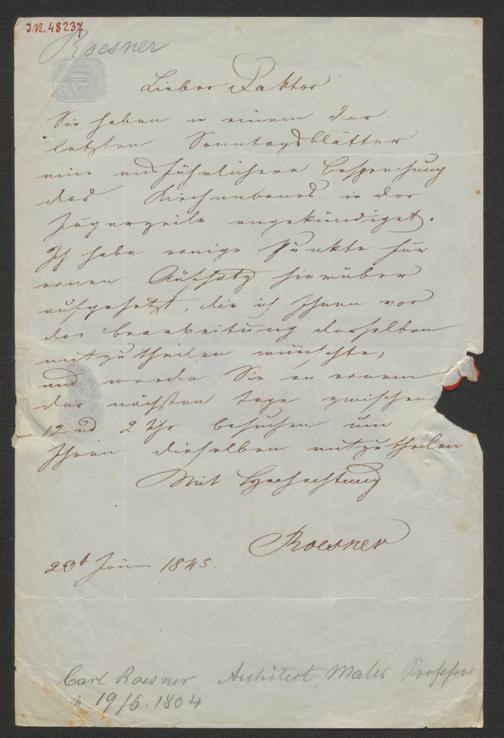 I.N. 48237
Roesner
Lieber Doktor
Sie haben in einem der
letzten Sonntagsblätter
eine ausführlichere Besprechung
des Kirchenbaues in der
Jägerzeile angekündiget.
Ich habe einige Punkte für
einen Aufsatz hierüber
aufgesetzt, die ich Ihnen vor
der Bearbeitung desselben
mitzutheilen wünschte,
und werde Sie an einem
der nächsten Tage zwischen
12 und 2 Uhr besuchen um
Ihnen dieselben mitzutheilen
Mit Hochachtung
Roesner
23t 1845.
Carl Roesner Architect, Maler Professor
19/6. 1804